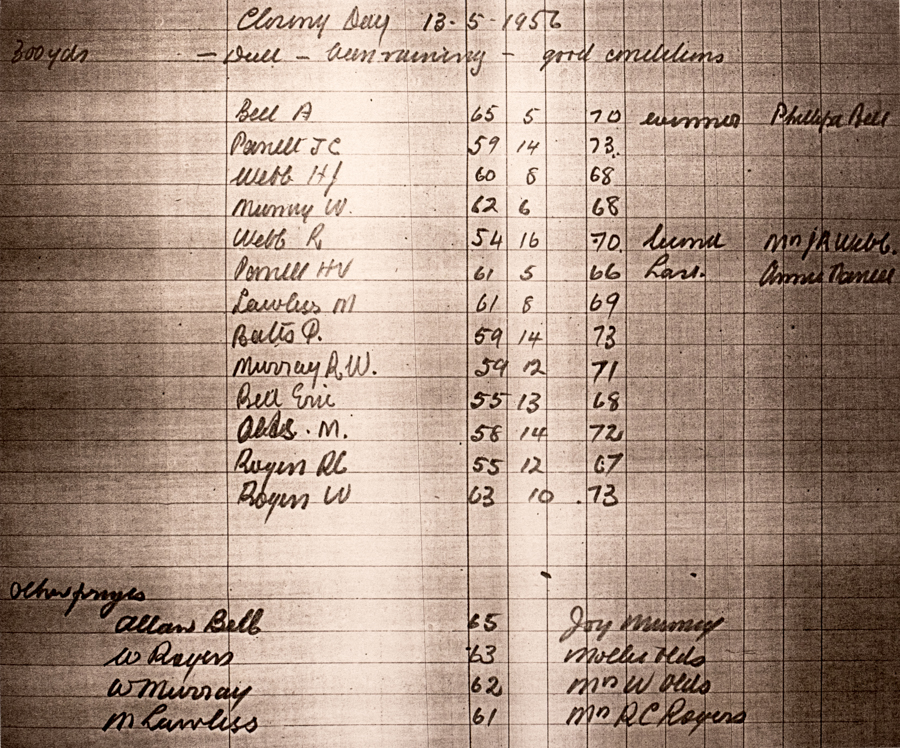 Closing Day 13-5-1956
300 yds - Dull - been raining - good conditions
Bell A 65 5 70 winner Phillipa Bell
Parnell J C 59 14 73
Webb H J 60 8 68
Murray W. 62 6 68
Webb R 54 16 70 second Mrs J R Webb.
Parnell H V 61 5 66 Last. Annie Parnell
Lawless M 61 8 69
Batts P. 59 14 73
Murray R.W. 59 12 71
Bell Eric 55 13 68
Olds. M. 58 14 72
Rogers R C 55 12 67
Rogers W 63 10 73
Other prizes
Allan Bell 65 Joy Murray
W Rogers 63 Mollie Olds
W Murray 62 Mrs W Olds
M Lawless 61 Mrs R C Rogers